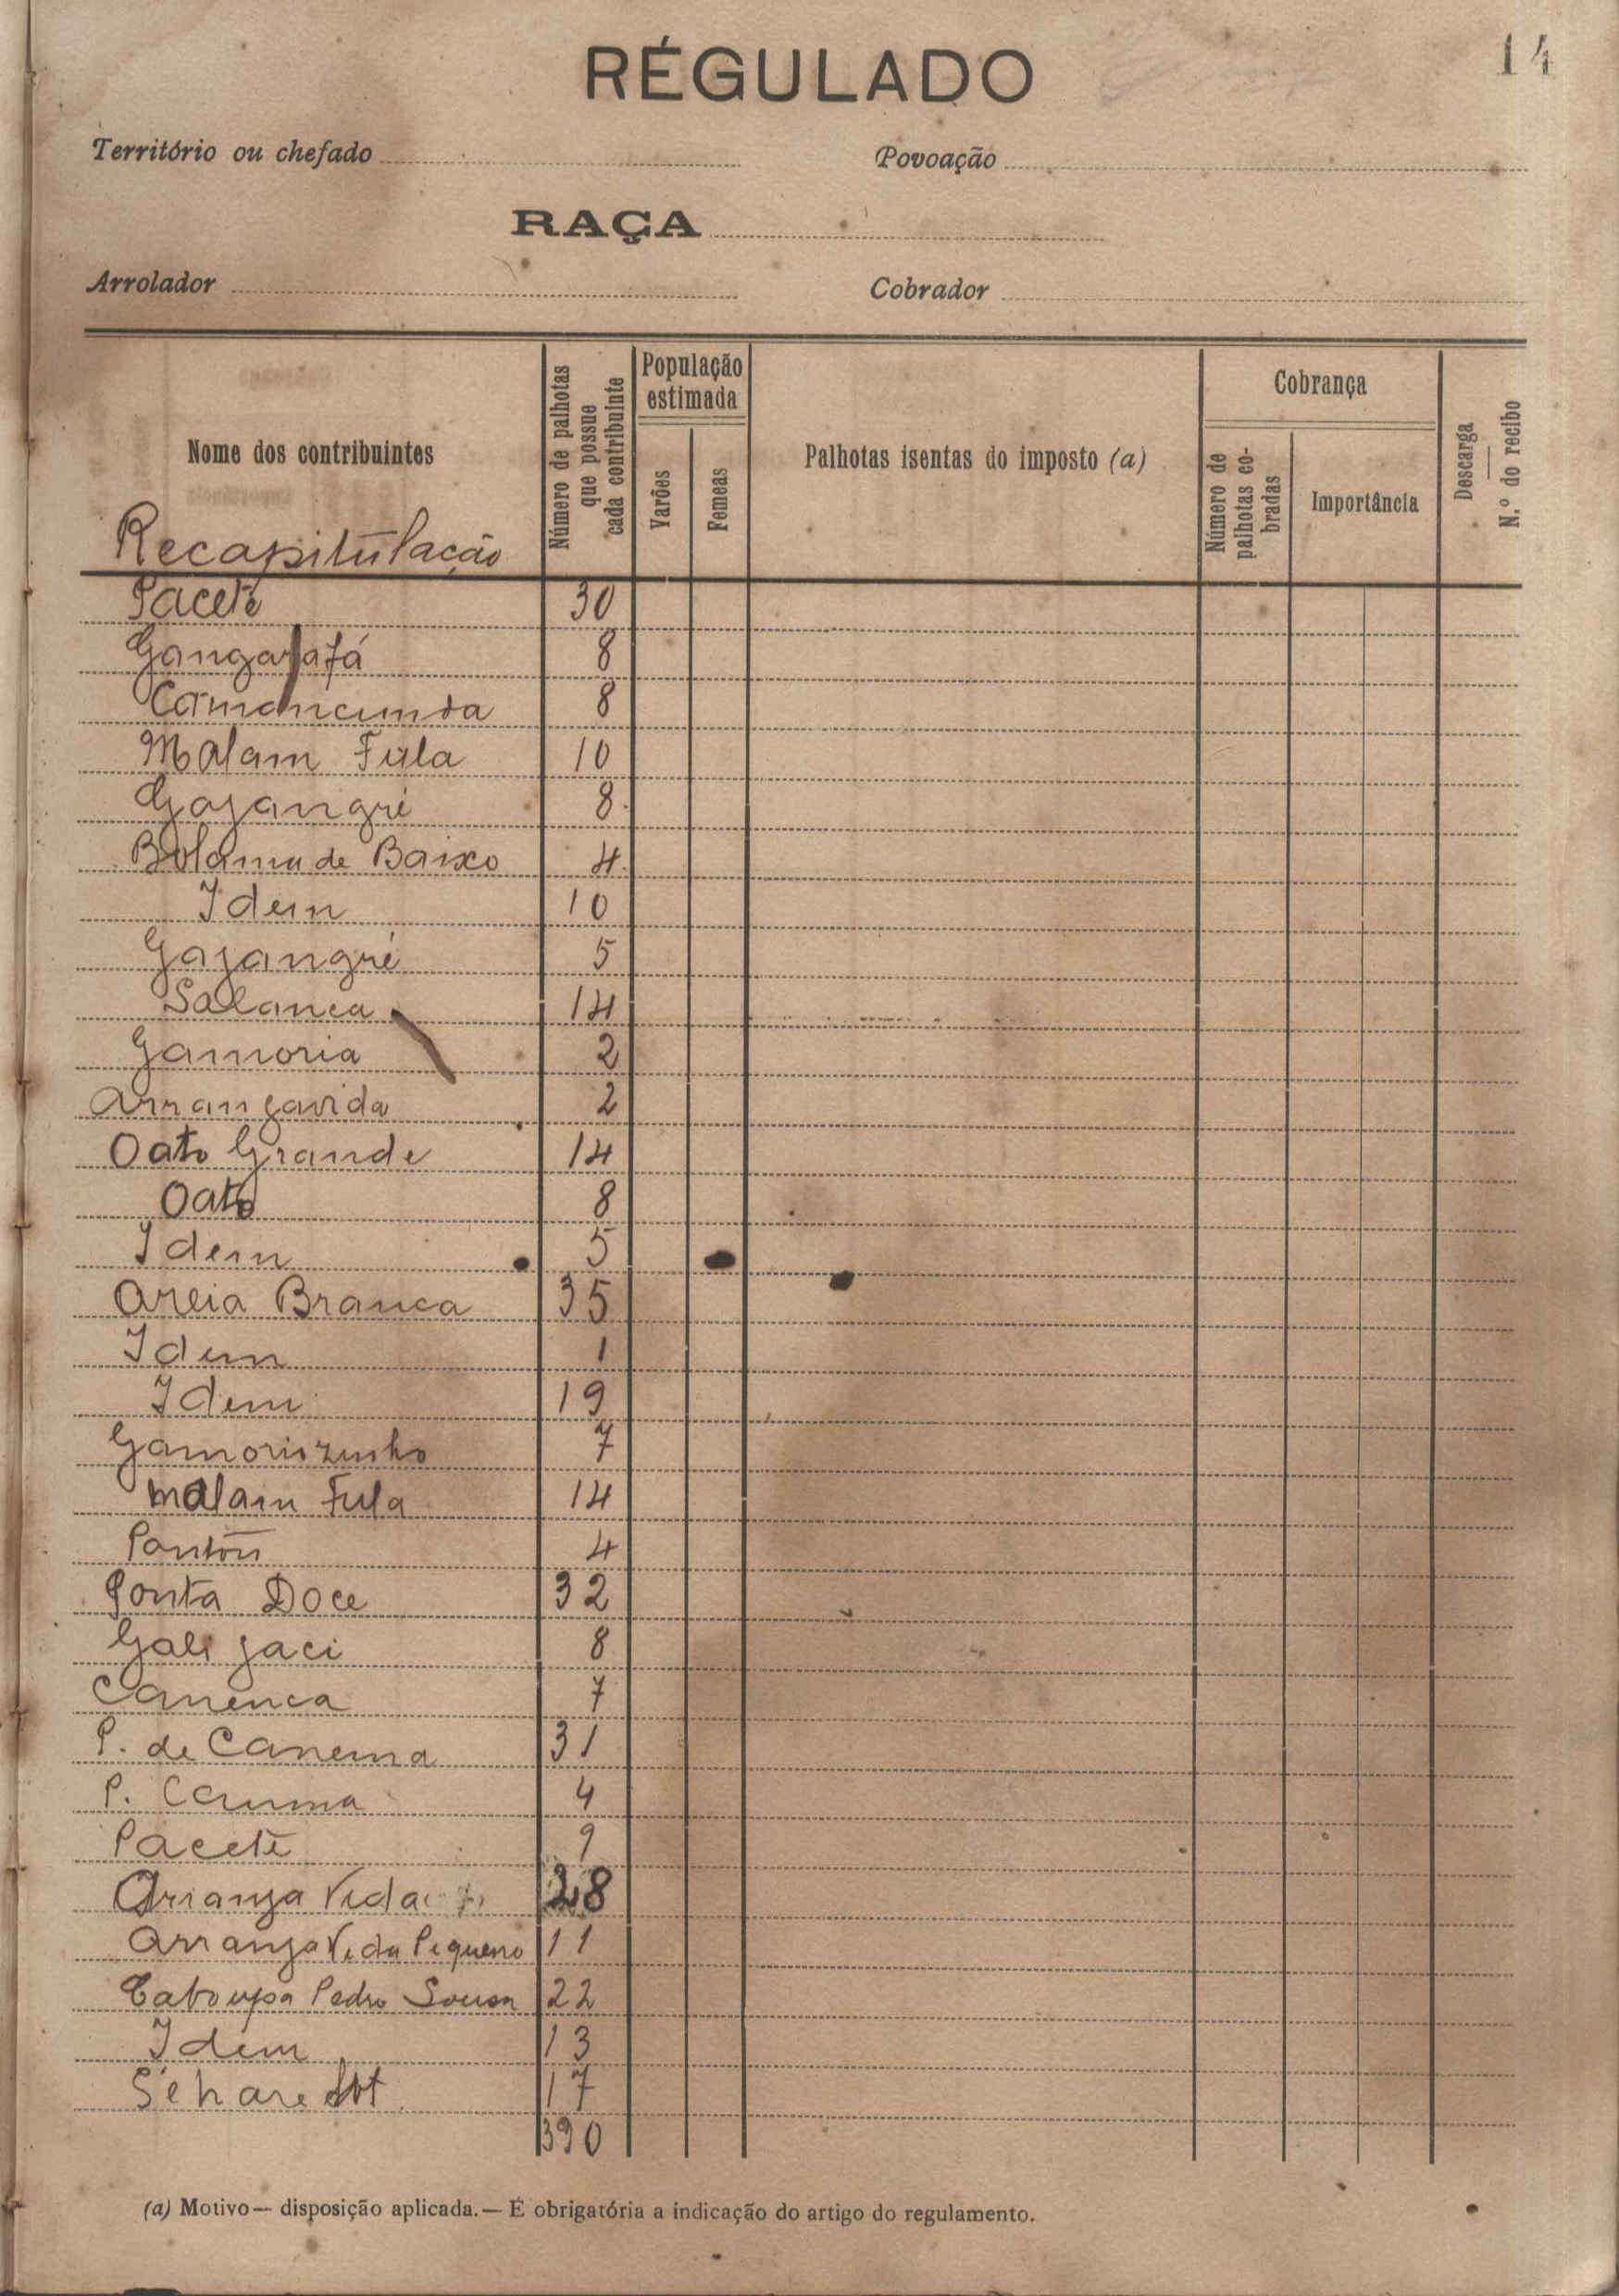 14
RÉGULADO
Território ou chefado Povoação
RAÇA
Arrolador Cobrador
Nome dos contribuintes
Número de palhotas que possue cada contribuinte
População estimada
Varões
Femeas
Palhotas isentas do imposto (a)
Cobrança
Número de palhotas co-bradas
Importância
Descarga
N.º do recibo
Recapitulação
Paceté 30
8
Camancunda 8
Malam Fula 10
Gajangré 8
Bolama de Baixo 4
Idem 10
Gajangré 5
Salanca 14
Gamoria 2
Arranjavida 2
Oato Grande 14
Oato 8
Idem 5
Areia Branca 35
Idem 1
Idem 19
Gamoriazinho 7
Malam Fula 14
4
Ponta Doce 32
Gali jaci 8
7
P. de 31
P. 4
Paceté 9
Arranja Vida 28
Arranja Vida Pequeno 11
Pedro Sousa 22
Idem 13
17
390
(a) Motivo — disposição aplicada. — É obrigatória a indicação do artigo do regulamento.